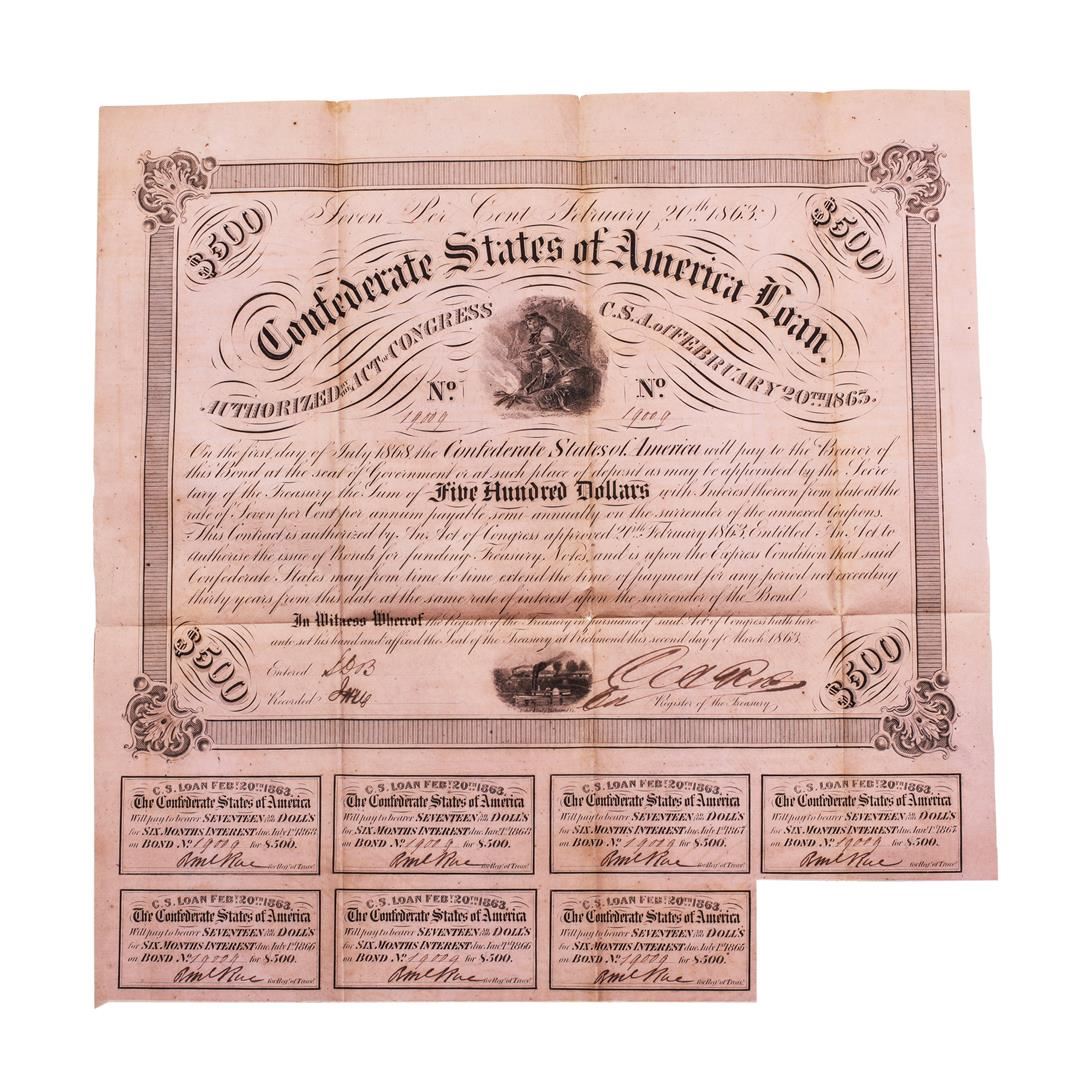 $500
Seven Per Cent February, 20th 1863.
$500
Confederate States of America Loan.
AUTHORIZED BY THE ACT of CONGRESS
C.S.A. of FEBRUARY 20TH 1863.
No 19009
No 19009
On the first day of July 1868 the Confederate States of America will pay to the Bearer of
this Bond at the seat of Government or at such place of deposit as may be appointed by the Secre
tary of the Treasury the Sum of Five Hundred Dollars with Interest thereon from date at the
rate of Seven per Cent per annum payable semi-annually on the surrender of the annexed Coupons.
This Contract is authorized by An Act of Congress approved 20th February 1863, Entitled "An Act to
authorise the issue of Bonds for funding Treasury Notes, and is upon the Express Condition that said
Confederate States may from time to time extend the time of payment for any period not exceeding
thirty years from this date at the same rate of interest upon the surrender of the Bond
In Witness Whereof the Register of the Treasury in pursuance of said Act of Congress hath here
unto set his hand and affixed the Seal of the Treasury at Richmond this second day of March 1863.
$500
Entered
Recorded
Register of the Treasury
$500
C.S. LOAN FEBY. 20TH 1863.
The Confederate States of America
Will pay to bearer SEVENTEEN 50/100 DOLL'S
for SIX MONTHS INTEREST due July 1st 1868
on BOND No 19009 for $.500.
for Regr of Treasy
C.S. LOAN FEBY. 20TH 1863.
The Confederate States of America
Will pay to bearer SEVENTEEN 50/100 DOLL'S
for SIX MONTHS INTEREST due Jany 1st 1868
on BOND No 19009 for $.500.
for Regr of Treasy
C.S. LOAN FEBY. 20TH 1863.
The Confederate States of America
Will pay to bearer SEVENTEEN 50/100 DOLL'S
for SIX MONTHS INTEREST due July 1st 1867
on BOND No 19009 for $.500.
for Regr of Treasy
C.S. LOAN FEBY. 20TH 1863.
The Confederate States of America
Will pay to bearer SEVENTEEN 50/100 DOLL'S
for SIX MONTHS INTEREST due Jany 1st 1867
on BOND No 19009 for $.500.
for Regr of Treasy
C.S. LOAN FEBY. 20TH 1863.
The Confederate States of America
Will pay to bearer SEVENTEEN 50/100 DOLL'S
for SIX MONTHS INTEREST due July 1st 1866
on BOND No 19009 for $.500.
for Regr of Treasy
C.S. LOAN FEBY. 20TH 1863.
The Confederate States of America
Will pay to bearer SEVENTEEN 50/100 DOLL'S
for SIX MONTHS INTEREST due Jany 1st 1866
on BOND No 19009 for $.500.
for Regr of Treasy
C.S. LOAN FEBY. 20TH 1863.
The Confederate States of America
Will pay to bearer SEVENTEEN 50/100 DOLL'S
for SIX MONTHS INTEREST due July 1st 1865
on BOND No 19009 for $.500.
for Regr of Treasy